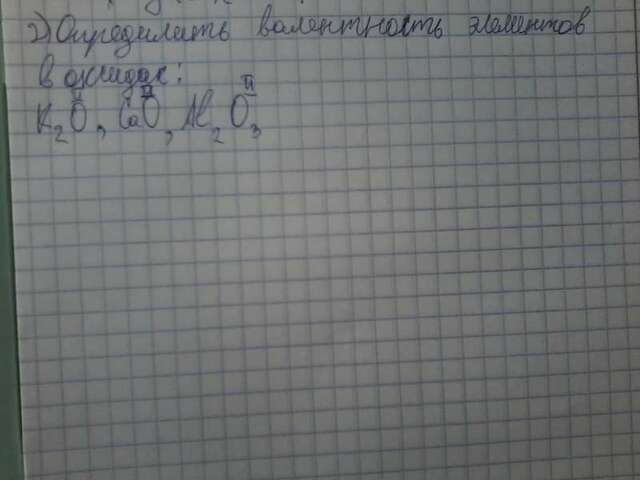 2) Определить валентность элементов
в оксидах:
K₂O, CaO, Al₂O₃
II II II